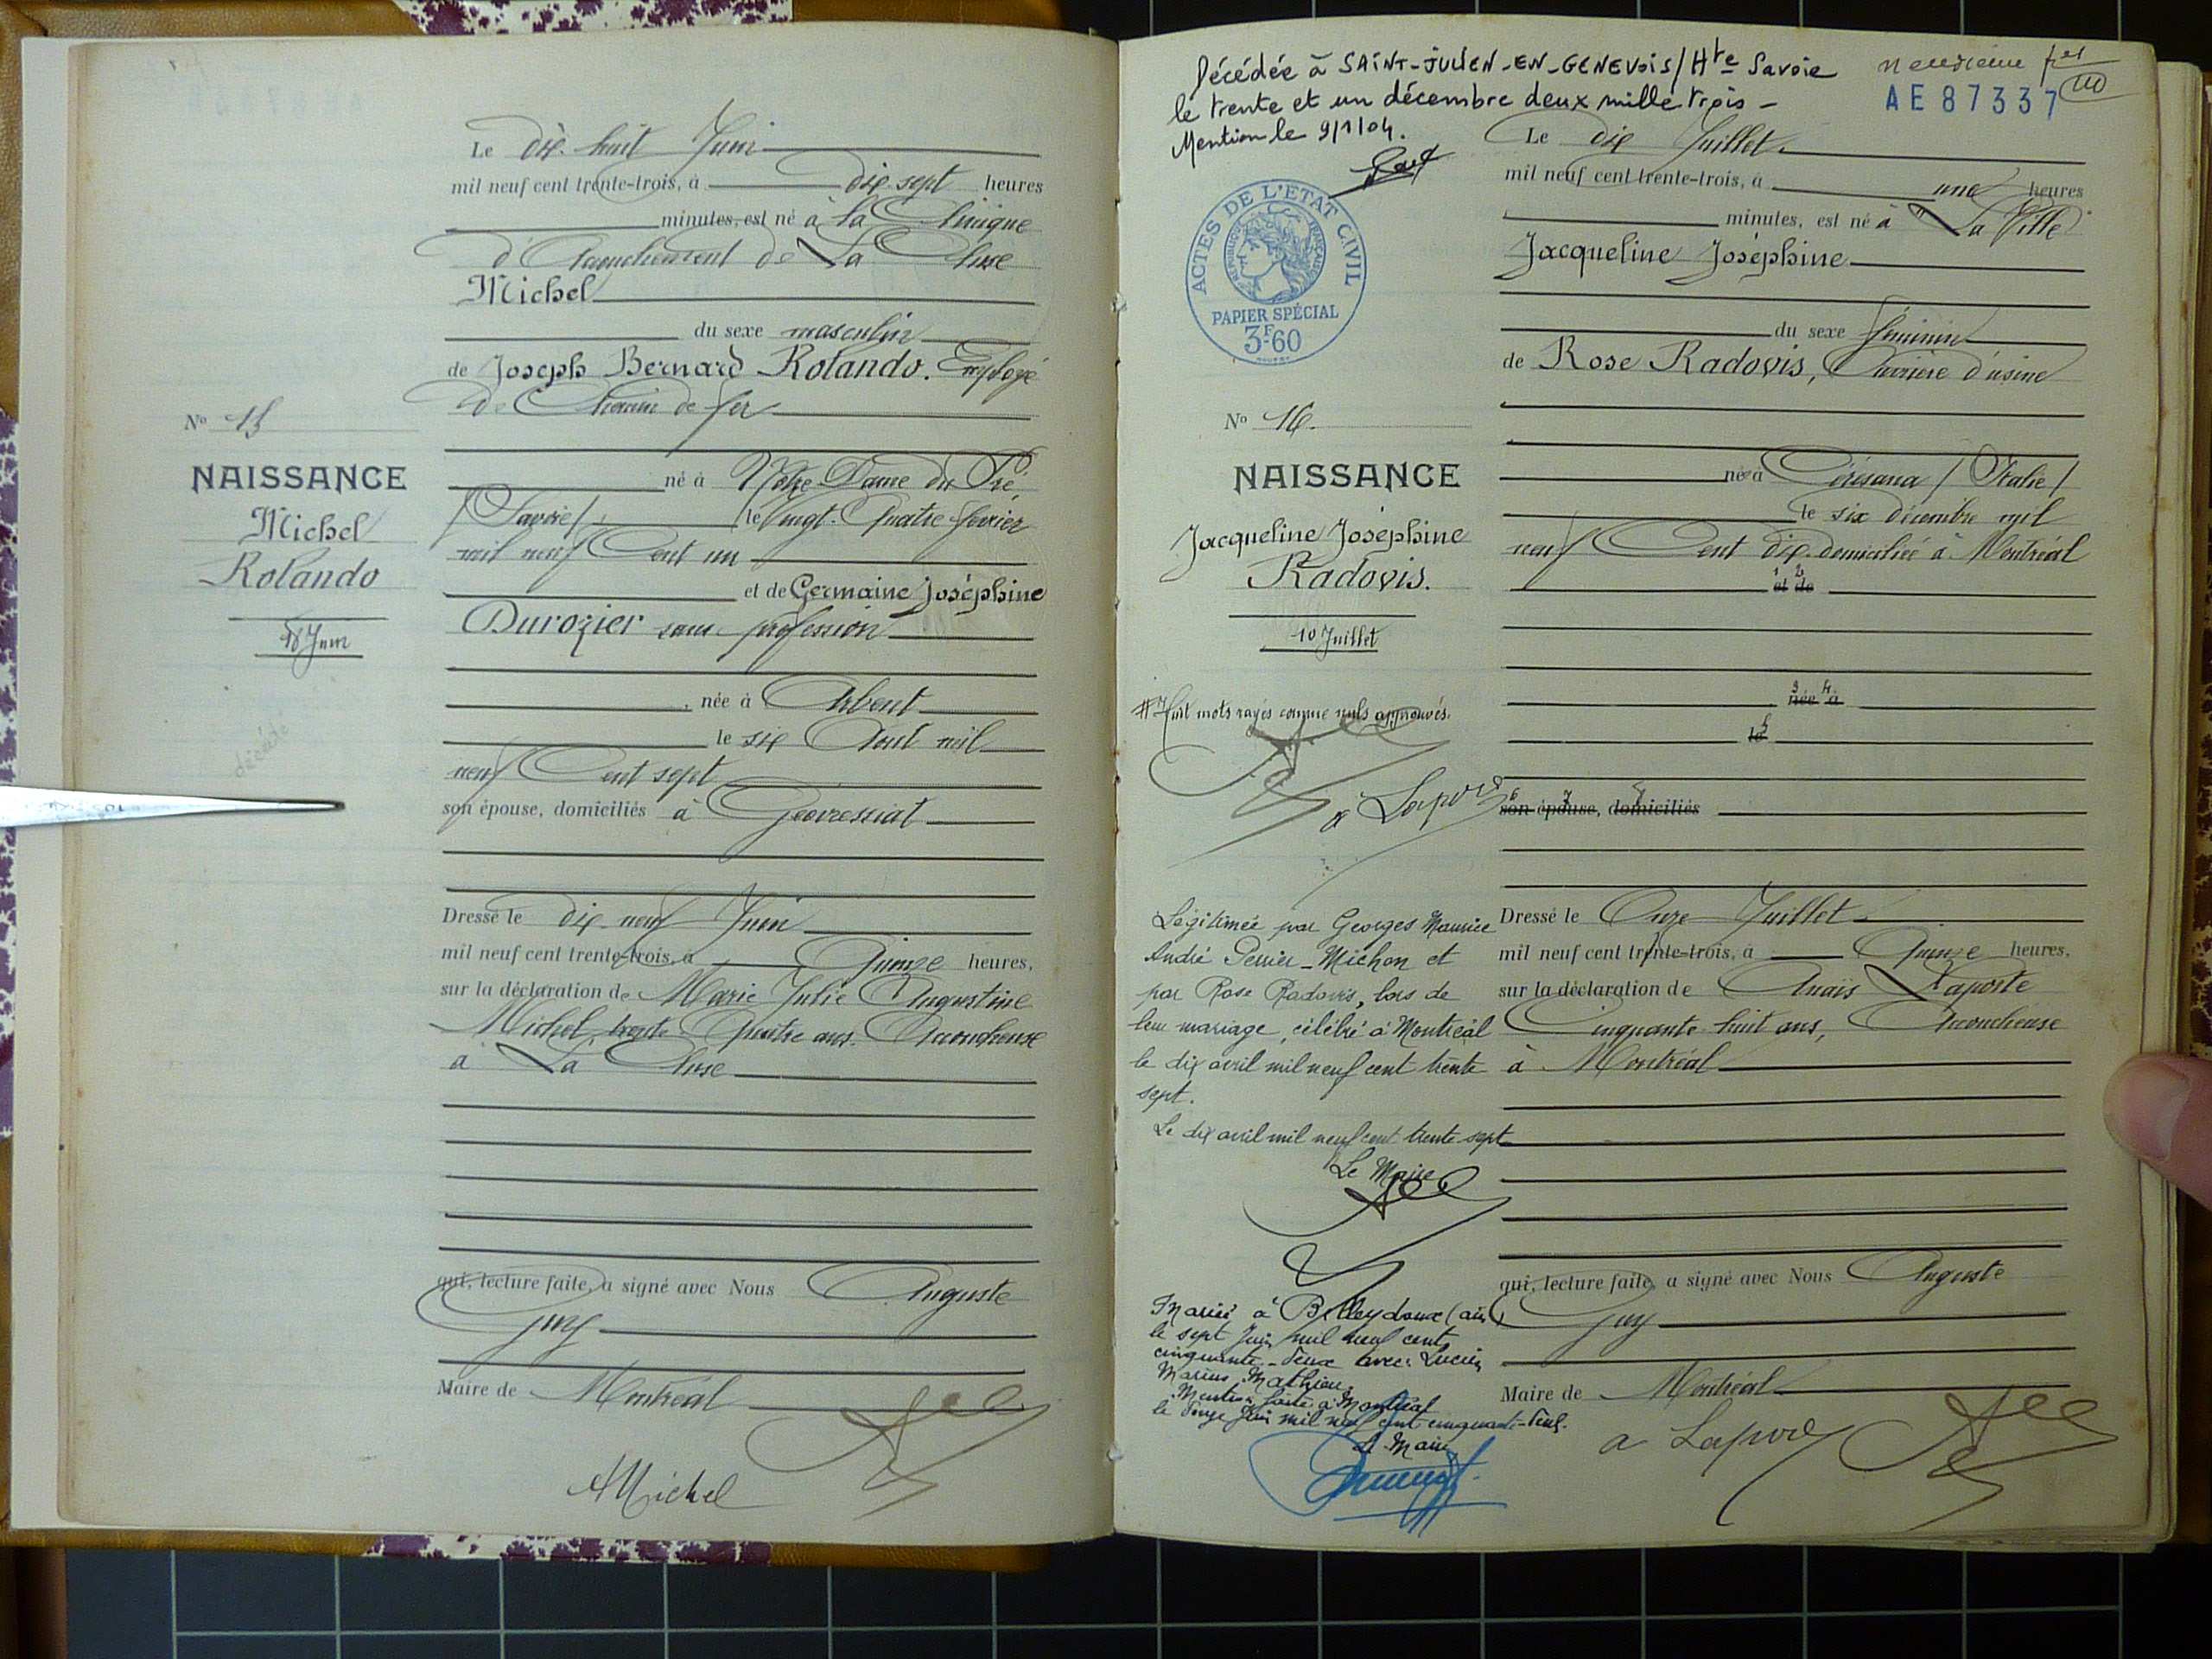 Le dix-huit Juin
mil neuf cent trente-trois, à dix-sept heures
minutes, est né à la Clinique
d'Accouchement de La Cluse
Michel
du sexe masculin
de Joseph Bernard Rolando. Employé
de Chemin de fer
né à Notre-Dame du Pré,
/Savoie/, le Vingt-Quatre février
mil neuf Cent un
et de Germaine Joséphine
Durozier sans profession
née à Arbent
le six Août mil
neuf Cent sept
son épouse, domiciliés à Géovressiat
Dressé le dix-neuf Juin
mil neuf cent trente-trois, à Quinze heures,
sur la déclaration de Marie Julie Augustine
Michel, trente-Quatre ans. Accoucheuse
à La Cluse
qui, lecture faite, a signé avec Nous Auguste
Guy
Maire de Montréal
AMichel
No 15
NAISSANCE
Michel
Rolando
18 Juin
décédé
Décédée à SAINT-JULIEN-EN-GENEVOIS/Hte Savoie
le trente et un décembre deux mille trois -
Mention le 9/1/04.
neuvième fet
AE87337
ACTES DE L'ETAT CIVIL
REPUBLIQUE FRANÇAISE
PAPIER SPÉCIAL
3F60
Le dix Juillet.
mil neuf cent trente-trois, à une heures
minutes, est né à "La Ville"
Jacqueline Joséphine
du sexe féminin
de Rose Radovis, Ouvrière d'usine
née à Cérésana /Italie/
le six décembre mil
neuf Cent dix. domiciliée à Montréal
1 2
et de
3 4
née à
5
le
6 7 8
son épouse, domiciliés
Dressé le Onze Juillet
mil neuf cent trente-trois, à Quinze heures,
sur la déclaration de Anaïs Laporte
Cinquante-huit ans, Accoucheuse
à Montréal
qui, lecture faite, a signé avec Nous Auguste
Guy
Maire de Montréal
a Laporte
No 16.
NAISSANCE
Jacqueline Joséphine
Radovis.
10 Juillet
# Huit mots rayés comme nuls approuvés.
a Laporte
Légitimée par Georges Maurice
André Perrier-Michon et
par Rose Radovis, lors de
leur mariage, célébré à Montréal
le dix avril mil neuf cent trente
sept.
Le dix avril mil neuf cent trente-sept
Le Maire
Mariée à Belleydoux (ain)
le sept Juin mil neuf cent
cinquante-deux avec Lucien
Marius Mathieu.
Mention faite à Montréal
le douze Juin mil neuf cent cinquante-deux.
Le Maire